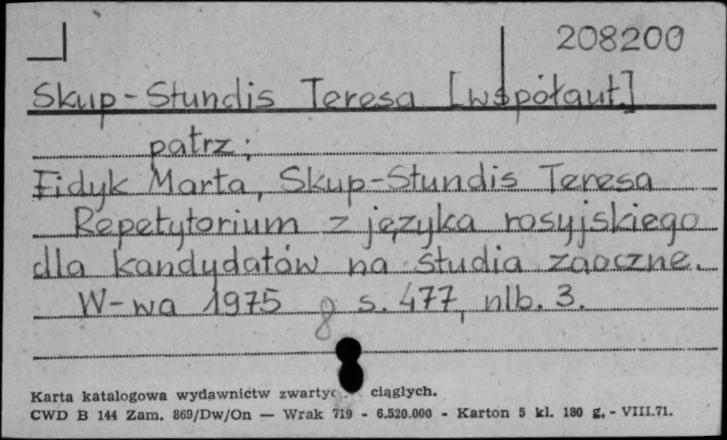 208200
Skup-Stundis Teresa [współaut.]
patrz;
Fidyk Marta, Skup-Stundis Teresa
Repetytorium z języka rosyjskiego
dla kandydatów na studia zaoczne.
W-wa 1975 8 s. 477, nlb. 3.
Karta katalogowa wydawnictw ciągłych.
CWD B 144 Zam. 869/Dw/On — Wrak 719 - 6.520.000 - Karton 5 kl. 180 g. - VIII.71.